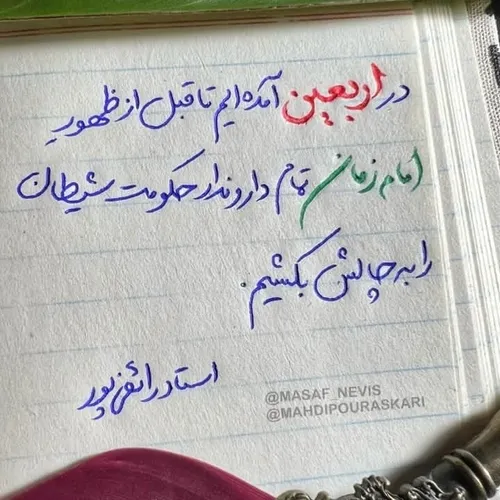 در اربعین آمده‌ایم تا قبل از ظهور
امام زمان تمام دار و ندار حکومت شیطان
را به چالش بکشیم.
استاد رائفی‌پور
@MASAF_NEVIS
@MAHDIPOURASKARI